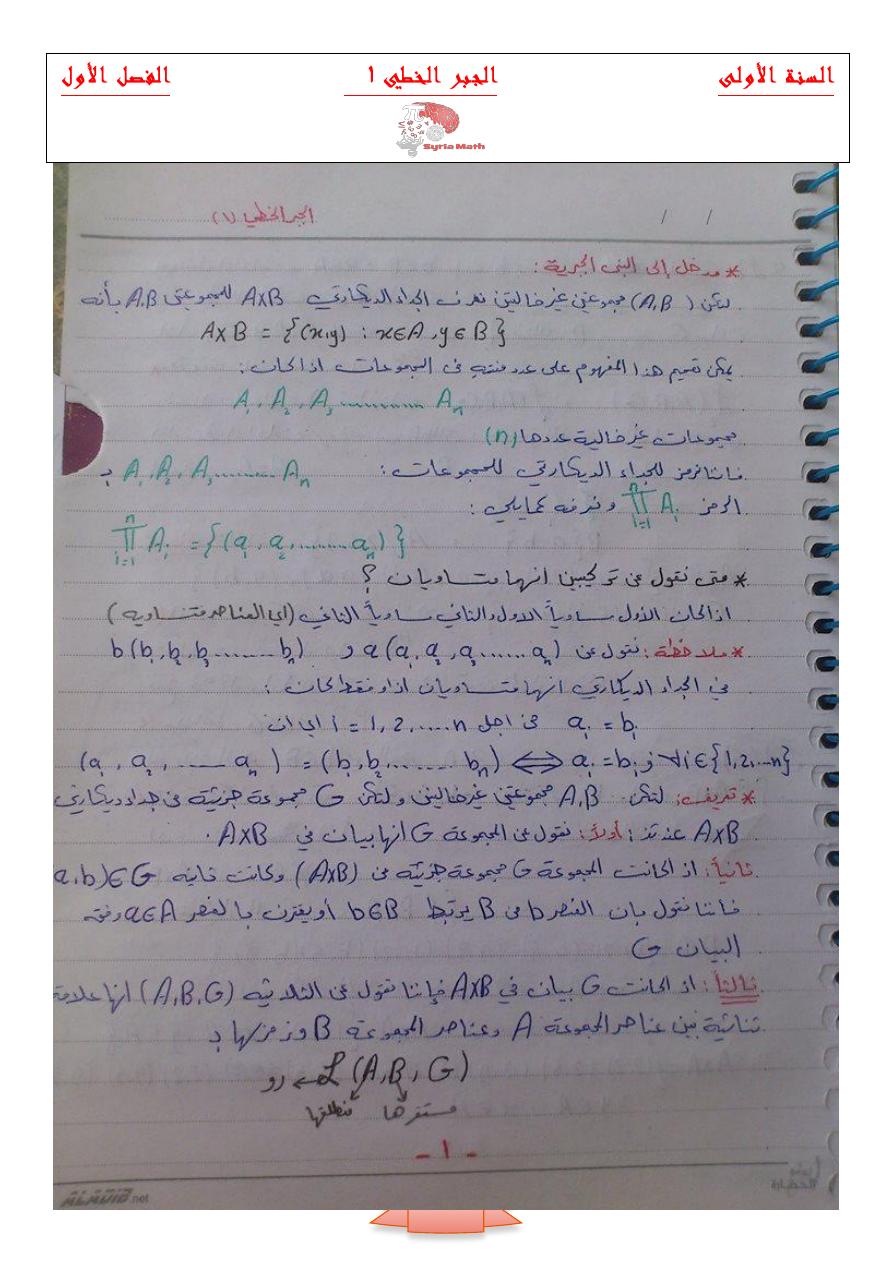 السنة الأولى الجبر الخطي ١ الفصل الأول
Syria Math
الجبر الخطي (١)
/ /
* مدخل إلى البنى الجبرية :
لتكن (A,B) مجموعتين غير خاليتين نعرف الجداء الديكارتي A×B للمجموعتين A,B بأنه
A×B = {(x,y) : x∈A , y∈B}
يمكن تعميم هذا المفهوم على عدد منته من المجموعات اذا كان :
A₁ , A₂ , A₃ ............ Aₙ
مجموعات غير خالية عددها (n)
فإننا نرمز للجداء الديكارتي للمجموعات : A₁ , A₂ , A₃ ......... Aₙ بـ
الرمز ∏ⁿᵢ₌₁ Aᵢ ونعرفه كمايلي :
∏ⁿᵢ₌₁ Aᵢ = {(a₁ , a₂ ,....... aₙ)}
* متى نقول عن تركيبين انهما متساويان ؟
اذا كان الاول مساوياً الاول والثاني مساوياً الثاني (اي العناصر متساويه)
* ملاحظة : نقول عن a(a₁, a₂, a₃ ...... aₙ) و b(b₁, b₂, b₃ ....... bₙ)
في الجداء الديكارتي انهما متساويان اذا وفقط كان :
aᵢ = bᵢ من اجل i = 1, 2, .... n اي ان
(a₁ , a₂ , ..... aₙ) = (b₁, b₂ ........ bₙ) ⟺ aᵢ = bᵢ ; ∀i∈{1,2,...n}
* تعريف : لتكن A,B مجموعتين غير خاليتين ولتكن G مجموعة جزئية من جداء ديكارتي
A×B عندئذ : أولاً : نقول عن المجموعة G انها بيان في A×B .
ثانياً : اذا كانت المجموعة G مجموعة جزئية من (A×B) وكانت a,b)∈G فإنه
فإننا نقول بان العنصر b من B يرتبط b∈B أو يقترن بالعنصر a∈A وفق
البيان G
ثالثاً : اذا كانت G بيان في A×B فإننا نقول عن الثلاثيه (A,B,G) انها علاقة
ثنائية بين عناصر المجموعة A وعناصر المجموعة B ونرمز لها بـ
رو ← ℒ (A,B,G)
مستقرها منطلقها
- ١ -
.net